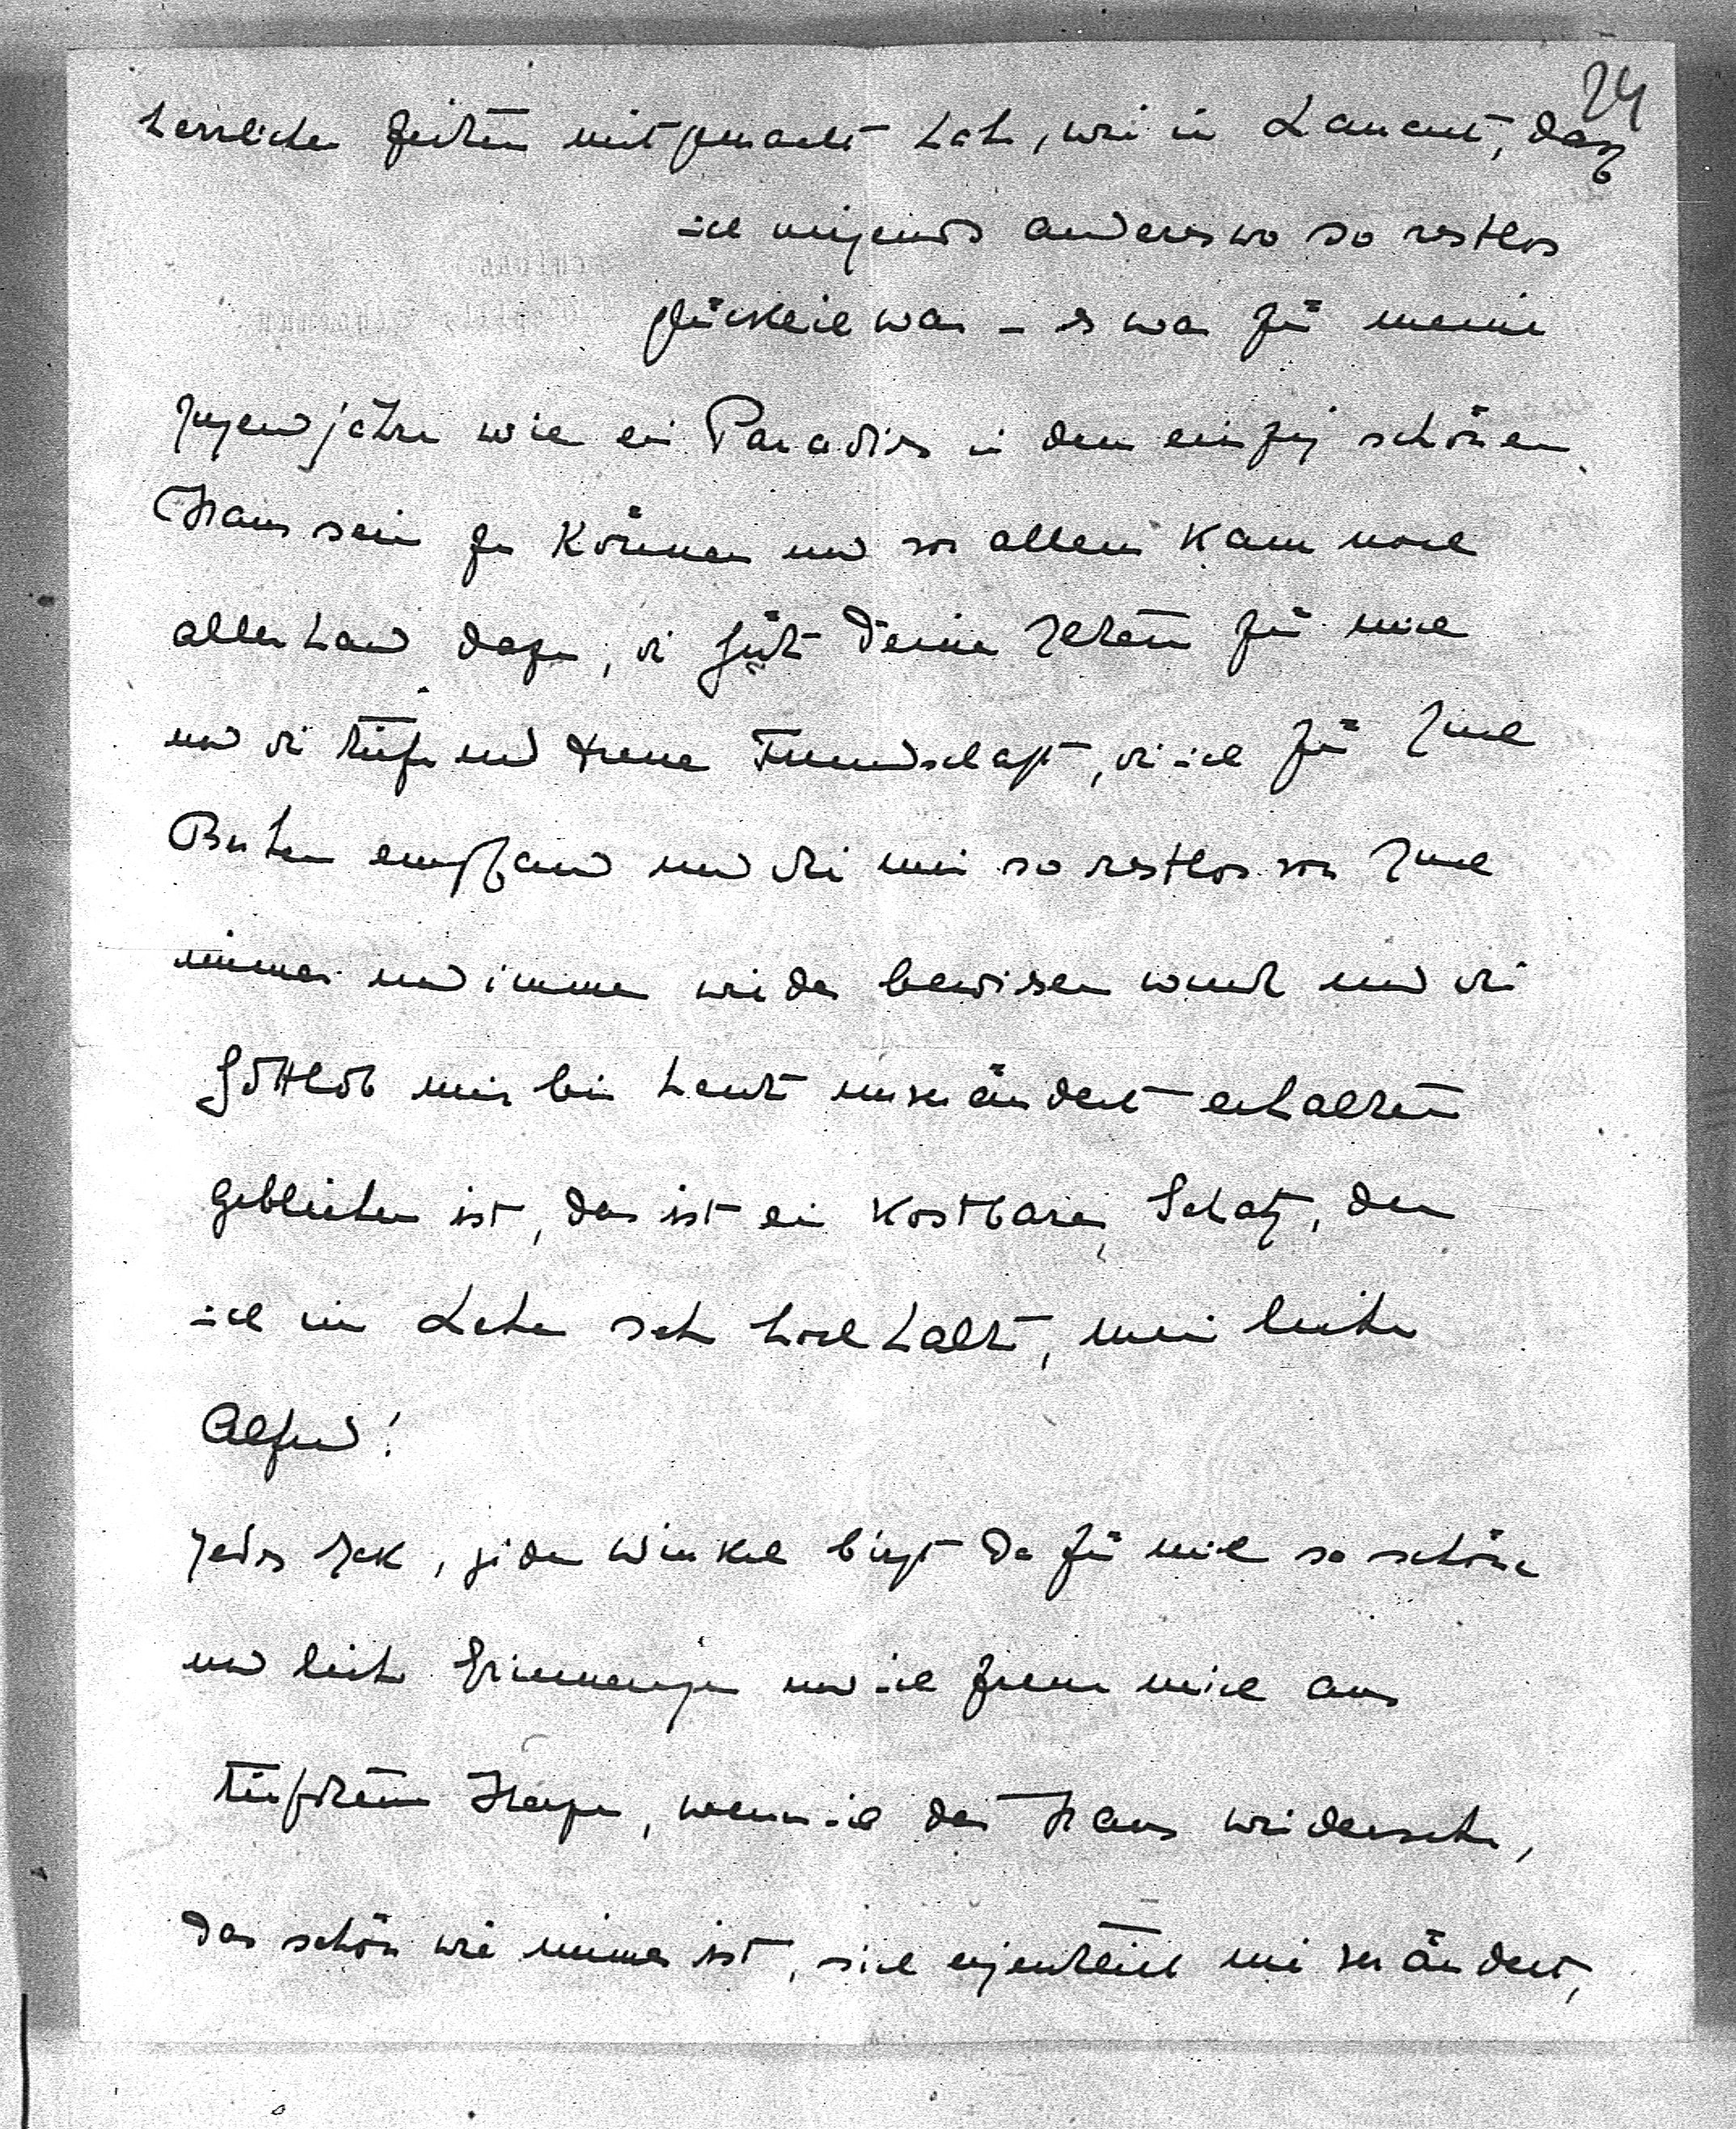 24
herrliche Zeiten mitgemacht habe, wie in Lancut, daß
ich nirgends anderswo so restlos
glücklich war – es war für meine
Jugendjahre wie ein Paradies in dem einzig schönen
Haus sein zu können und vor allem kam noch
allerhand dazu, die Güte Deiner Eltern für mich
und die tiefe und treue Freundschaft, die ich für Euch
Buben empfand und die mir so restlos von Euch
immer und immer wieder bewiesen wurde und die
Gottlob mir bis heute unverändert erhalten
geblieben ist, das ist ein kostbarer Schatz, den
ich im Leben sehr hoch halte, mein lieber
Alfred!
Jedes Eck, jeder Winkel birgt da für mich so schöne
und liebe Erinnerungen und ich freue mich aus
tiefstem Herzen, wenn ich das Haus wiedersehe,
das schön wie immer ist, sich eigentlich nie verändert,